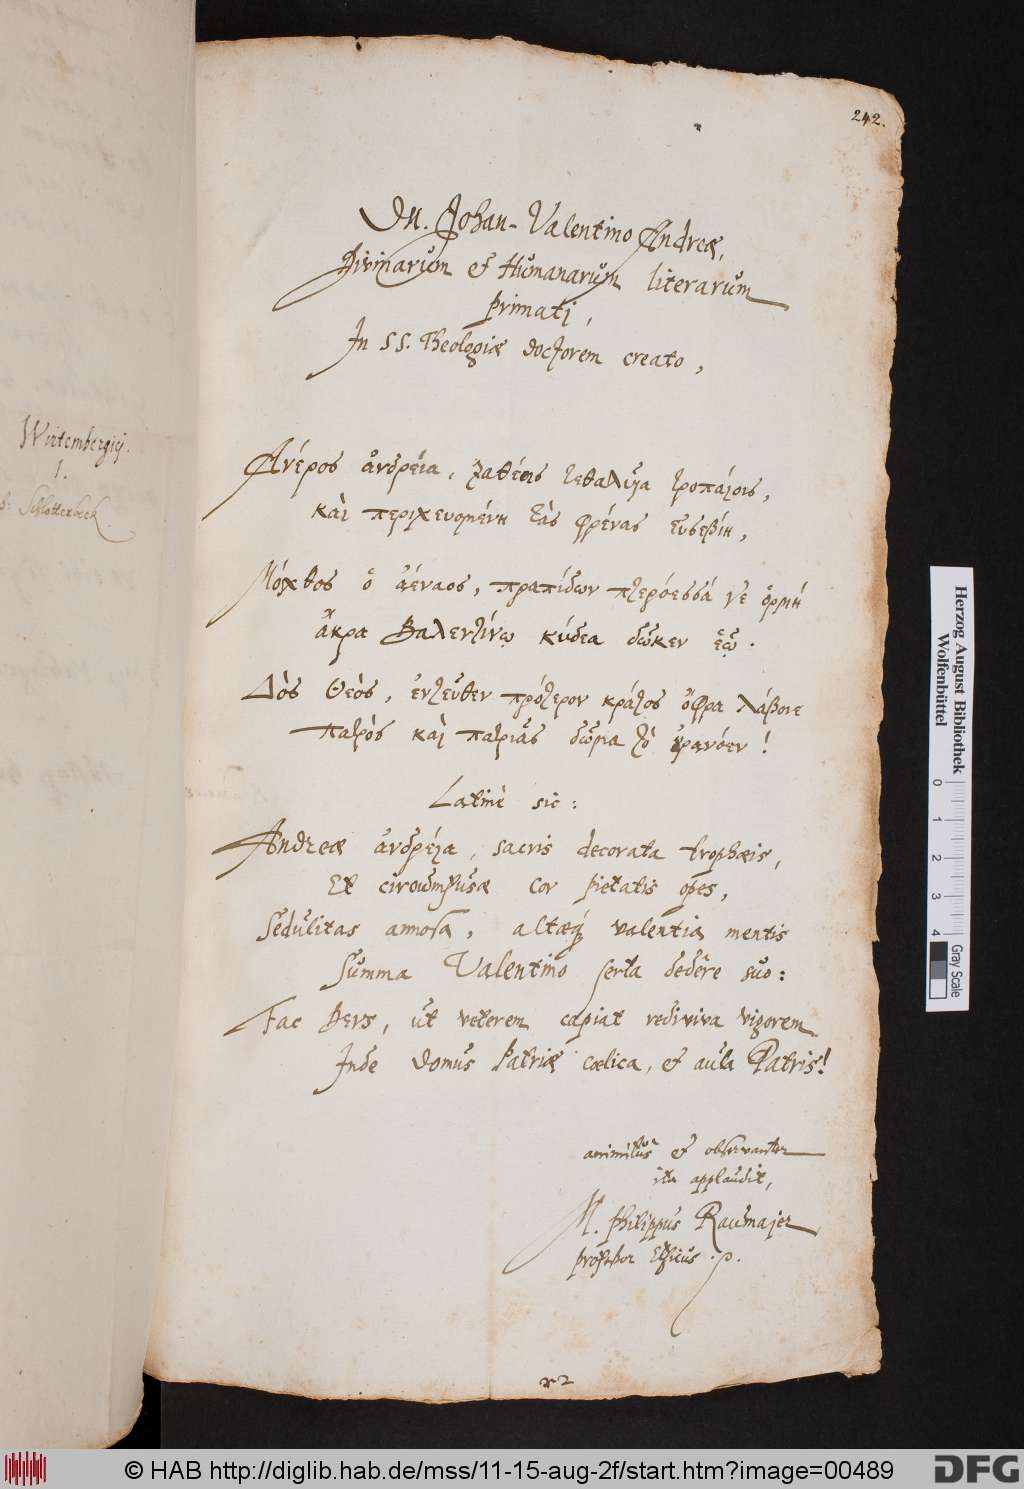 242.
Dn. Johan-Valentino Andreæ,
Divinarum et Humanarum literarum
primati,
In SS. Theologiæ doctorem creato,
Wirtembergicj.
1.
Schlotterbeck.
Ἀνέρος ἀνδρεία, ζαθέοις τεθαλυῖα τροπαίοις,
καὶ περιχευομένη τὰς φρένας εὐσεβίη,
Μόχθος ὁ ἀέναος, πραπίδων πτερόεσσά γε ὁρμή
ἄκρα Βαλεντίνῳ κύδεα δῶκεν ἑῷ.
Δὸς Θεὸς, ἐντεῦθεν πρότερον κράτος ὄφρα λάβοιε
πατρὸς καὶ πατριᾶς δῶμα τὸ ȣρανόεν!
Latinè sic:
Andreæ ἀνδρεία, sacris decorata trophæis,
Et circumfusæ cor pietatis opes,
Sedulitas annosa, altæq; valentia mentis
Summa Valentino serta dedêre suo:
Fac Deus, ut veterem capiat rediviva vigorem
Inde domus Patriæ cœlica, et aula Patris!
animitus et observanter
ita applaudit,
M. Philippus Baumajer
professor Ethicus. p.
x 2
Herzog August Bibliothek
Wolfenbüttel
0 1 2 3 4
Gray Scale
© HAB http://diglib.hab.de/mss/11-15-aug-2f/start.htm?image=00489
DFG